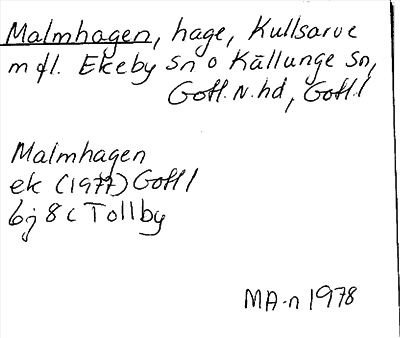 Malmhagen, hage, Kullsarve
m fl. Ekeby sn o Källunge sn,
Gotl. N. hd, Gotl. l
Malmhagen
ek (1977) Gotl l
6j 8 c Tollby
MA-n 1978